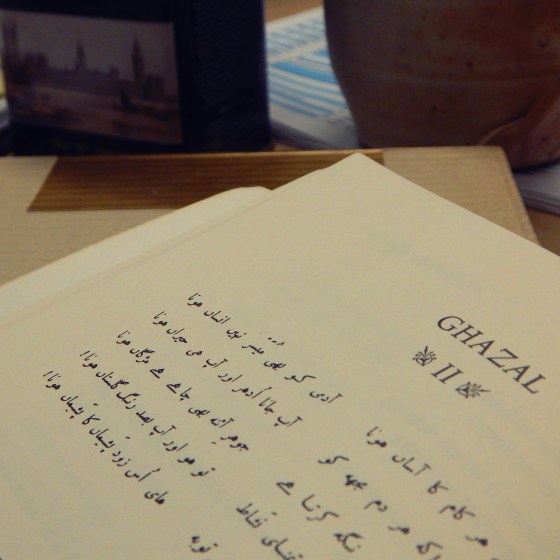 GHAZAL
II
ہر کام کا آساں ہونا
آدمی کو بھی میسّر نہیں انساں ہونا
کہ ہر دم مجھ کو
آپ جانا اُدھر اور آپ ہی حیراں ہونا
نگہ کرتا ہے
جوہرِ آئنہ بھی چاہے ہے مژگاں ہونا
تمنائے نشاط
تو ہو اور آپ بصد رنگ گلستاں ہونا!
توبہ
ہائے اُس زود پشیماں کا پشیماں ہونا!